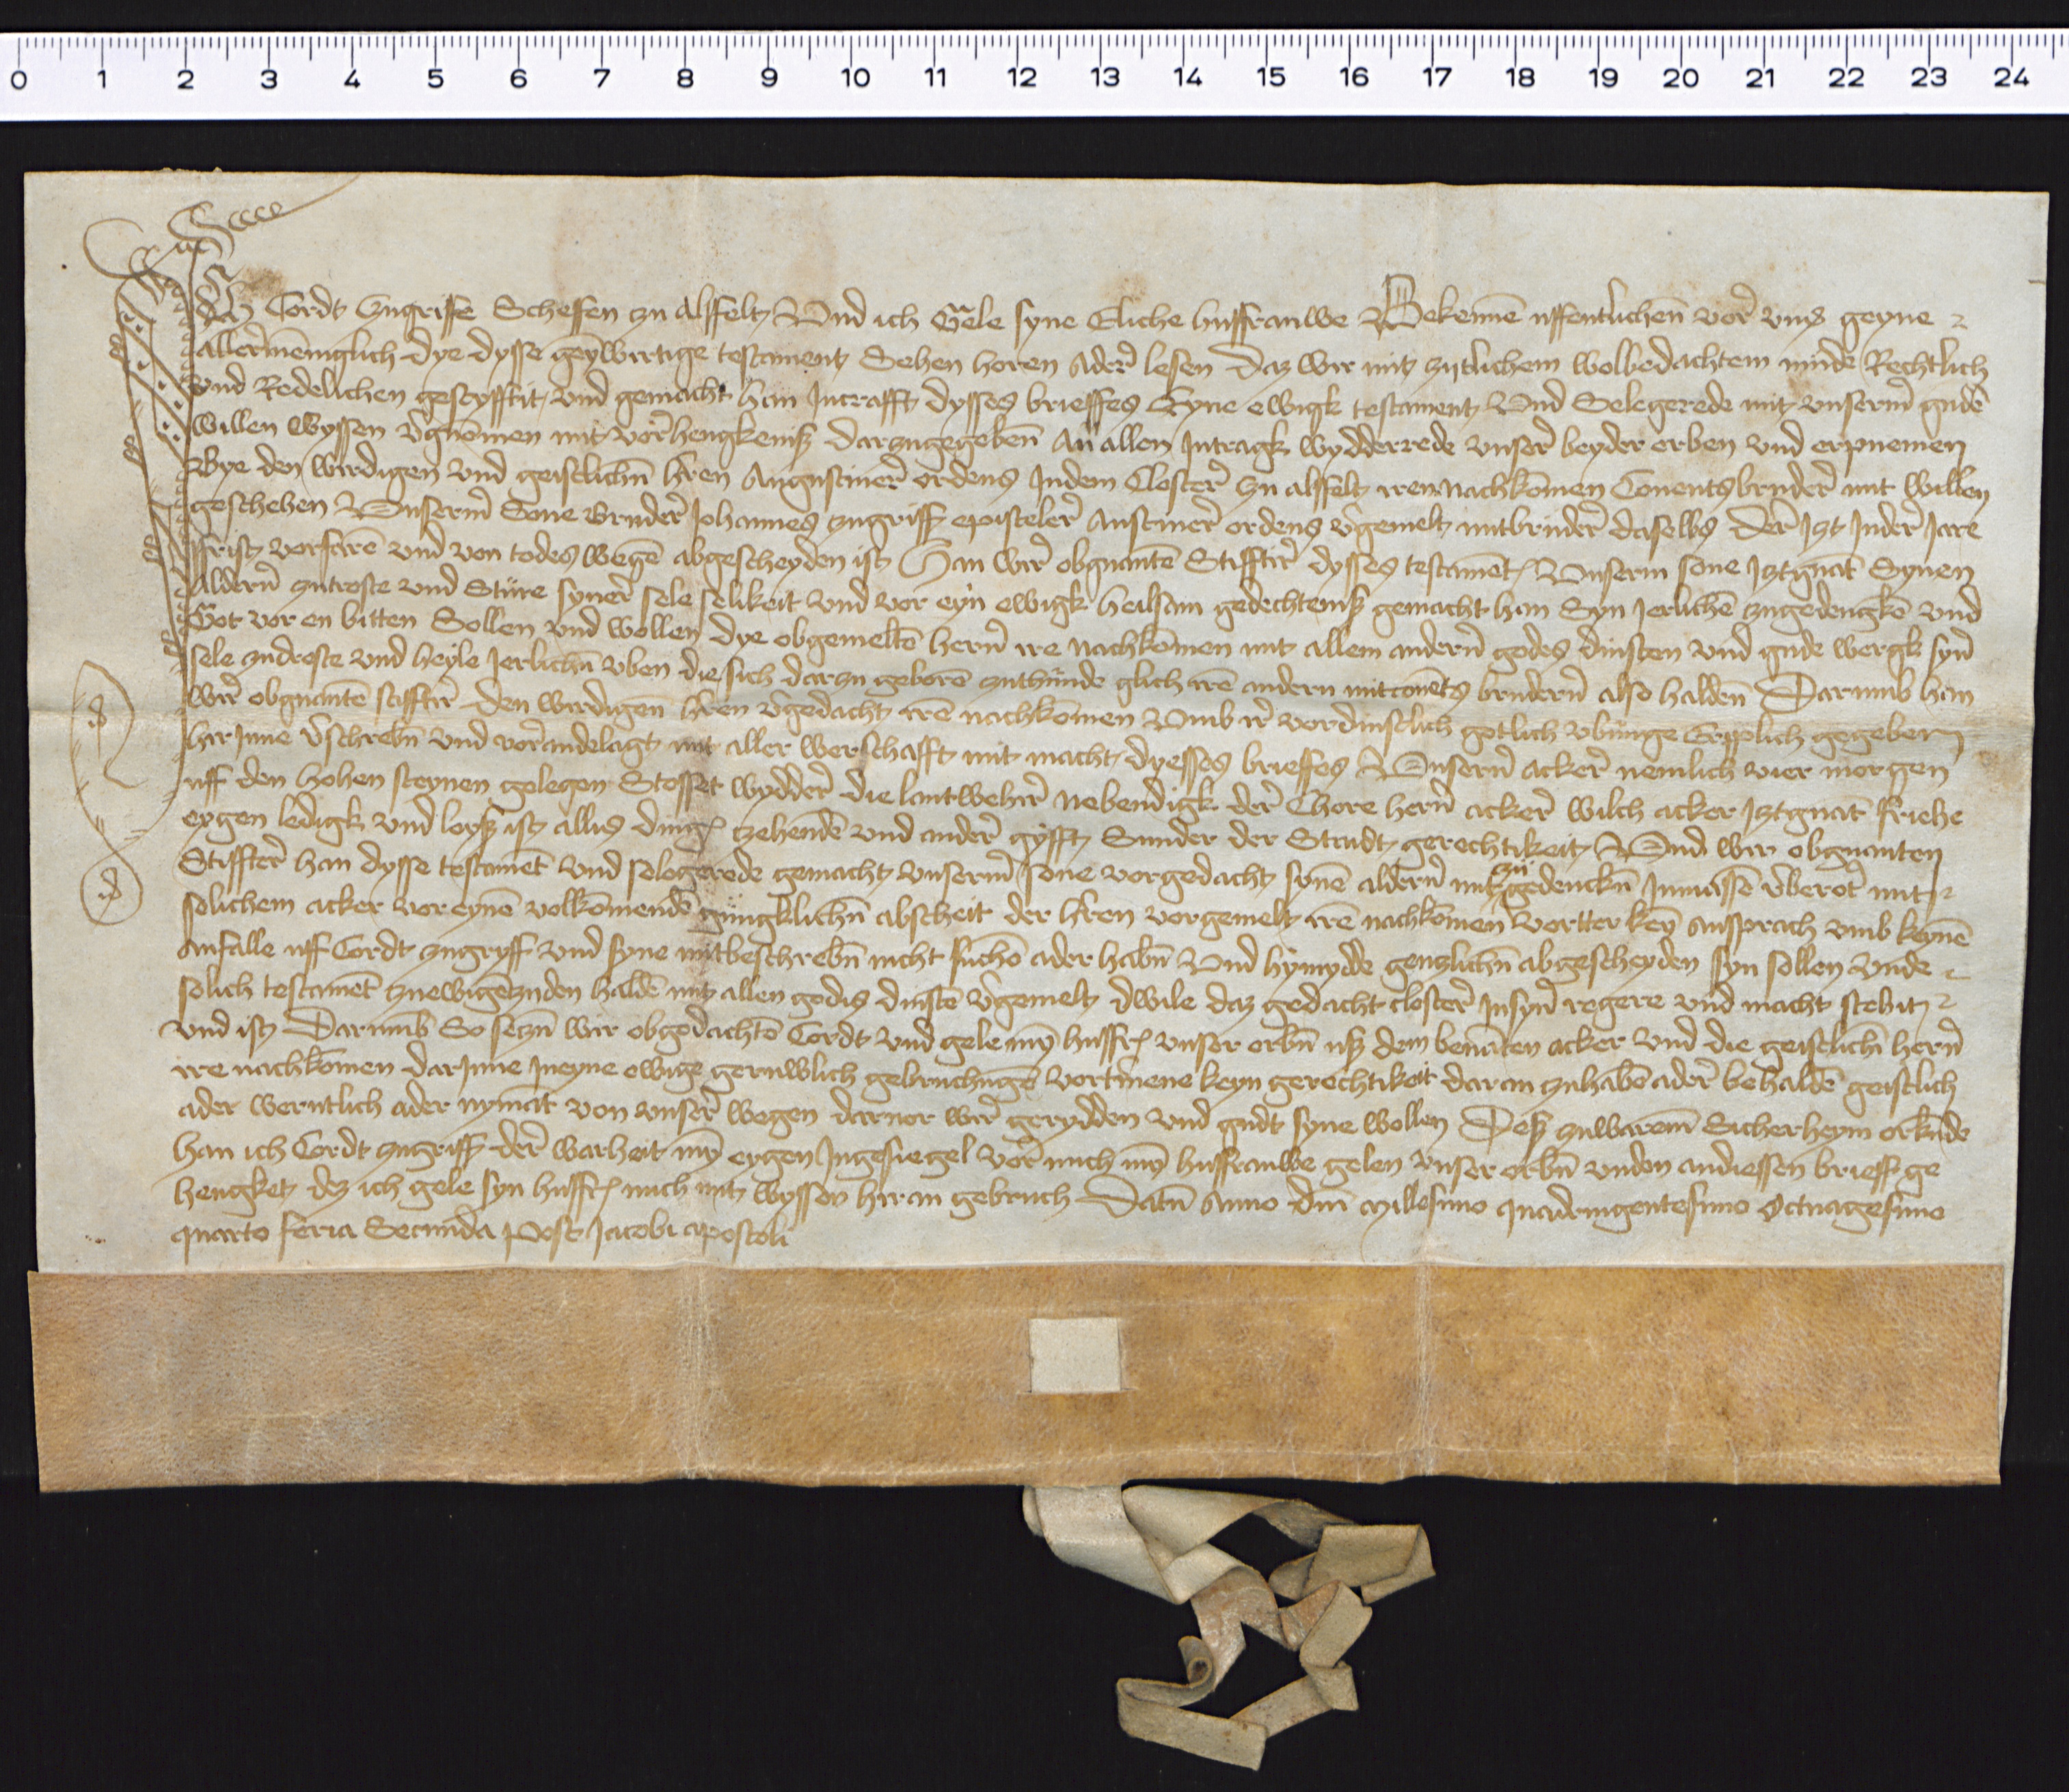 0 1 2 3 4 5 6 7 8 9 10 11 12 13 14 15 16 17 18 19 20 21 22 23 24
Ich Cordt Zugriffe Scheffen zu Alffeltz Und ich Gele syne Eliche husfrauwe Bekennē uffentlichenn vor vnß geyne
allermenniglich dye dysse geynwertige testament Sehen horen ader lesen Daz wir mitz zijtlichem wolbedachtem mude Rechtlich
vnd Redelichen gestyfftit vnd gemacht han Incrafft dysses brieffes Eyne ewigk testament Und Selegerede mitz vnserm gudē
willen Wyssen vgnōmen mit vorhengkeniß darzugegebenn An allen Intragk wydderrede vnser beyder erben vnd erpnemen
Bye den wirdigen vnd geistlichn hren Augustiner ordens Indem Closter zu alffeltz iren nachkōmen Conventsbruder mit willen
geschehen Unserm Sone Bruder Johannes zugriff epistler Austiner ordens vgemeltz mitbruder daselbs Der Itz Inder Jare
ffristz vorfarē vnd von todes wegē abgescheyden ist Han wir obgnantē Stiffter dysses testamēt Unserm sone Itztgnāt Synen
Aldern zutroste vnd Sture syner sele selikeit vnd vor eyn ewigk heilsam gedechteniß gemacht han Syn Jerlichē zugedengkē vnd
Got vor en bitten Sollen vnd wollen dye obgemeltē hern ire nachkōmen mit allem andern godes dinsten vnd gude wergk syn
sele zudroste vnd heyle Jerlichn vben die sich darzu geborē zuthunde glich irē andern mitconēts brudern also haldenn Darumb han
wir obgnantē stiffter den wirdigenn hren vgedacht irē nachkōmen Umb ir vordinstlich gotlich vbunge Erpplich gegeben
hir Inne vschrebn vnd vorandelagt mit aller werschafft mit macht dyesses brieffes Unsern acker nemlich vier morgen
uff den hohen steynen gelegen Stosset wydder die lantwehr nebendigk der Chore hern acker wilch acker Itztgnāt friehe
eygen ledigk vnd loyß ist allis dings zehendē vnd ander gyfft Sunder der Stadt gerechtikeit Und wir obgnanten
Stiffter han dysse testamēt vnd selegerede gemacht vnserm sone vorgedacht synē aldern mit zu gedenckn Inmassē vberort mit
solichem acker vor eynē volkōmendē gungklichn abscheit der hren vorgemeltz irē nachkōmen Vortter keyn Ansprach vmb keynē
Anfalle uff Cordt zugryff vnd syne mitbeschrebn nicht suchē ader habn Und hymydde gentzlichn abgescheyden syn sollen vnde
solich testamēt zuewigēzyden haldē mitz allen godis dinstē vgemeltz dwile daz gedacht closter Insyn regere vnd macht stehit
Und ist Darumb So setzn wir obgedachtē Cordt vnd gele myn husfr vnser erbn uß dem benāten acker Und die geistlichn hern
ire nachkōmen dar Inne Ineyne ewige geruwlich gebruchugē vortmene keyn gerechtikeit daran zuhabē ader behaldē geistlich
ader werntlich ader nymāt von vnser wegen darvor wir gerydden vnd gudt syne wollen Deß zuwarem Sicherheym orkūde
han ich Cordt zugriff der warheit myn eygen Ingesiegel vor mich myn husfrauwe gelen vnser erbn vnden andiessen brieff ge
hengket dez ich gele syn husfr mich mitz wyssen hiran gebruch Datū Anno dni Millesimo quadringentesimo Octuagesimo
quarto feria Secunda Post Jacobi apostoli